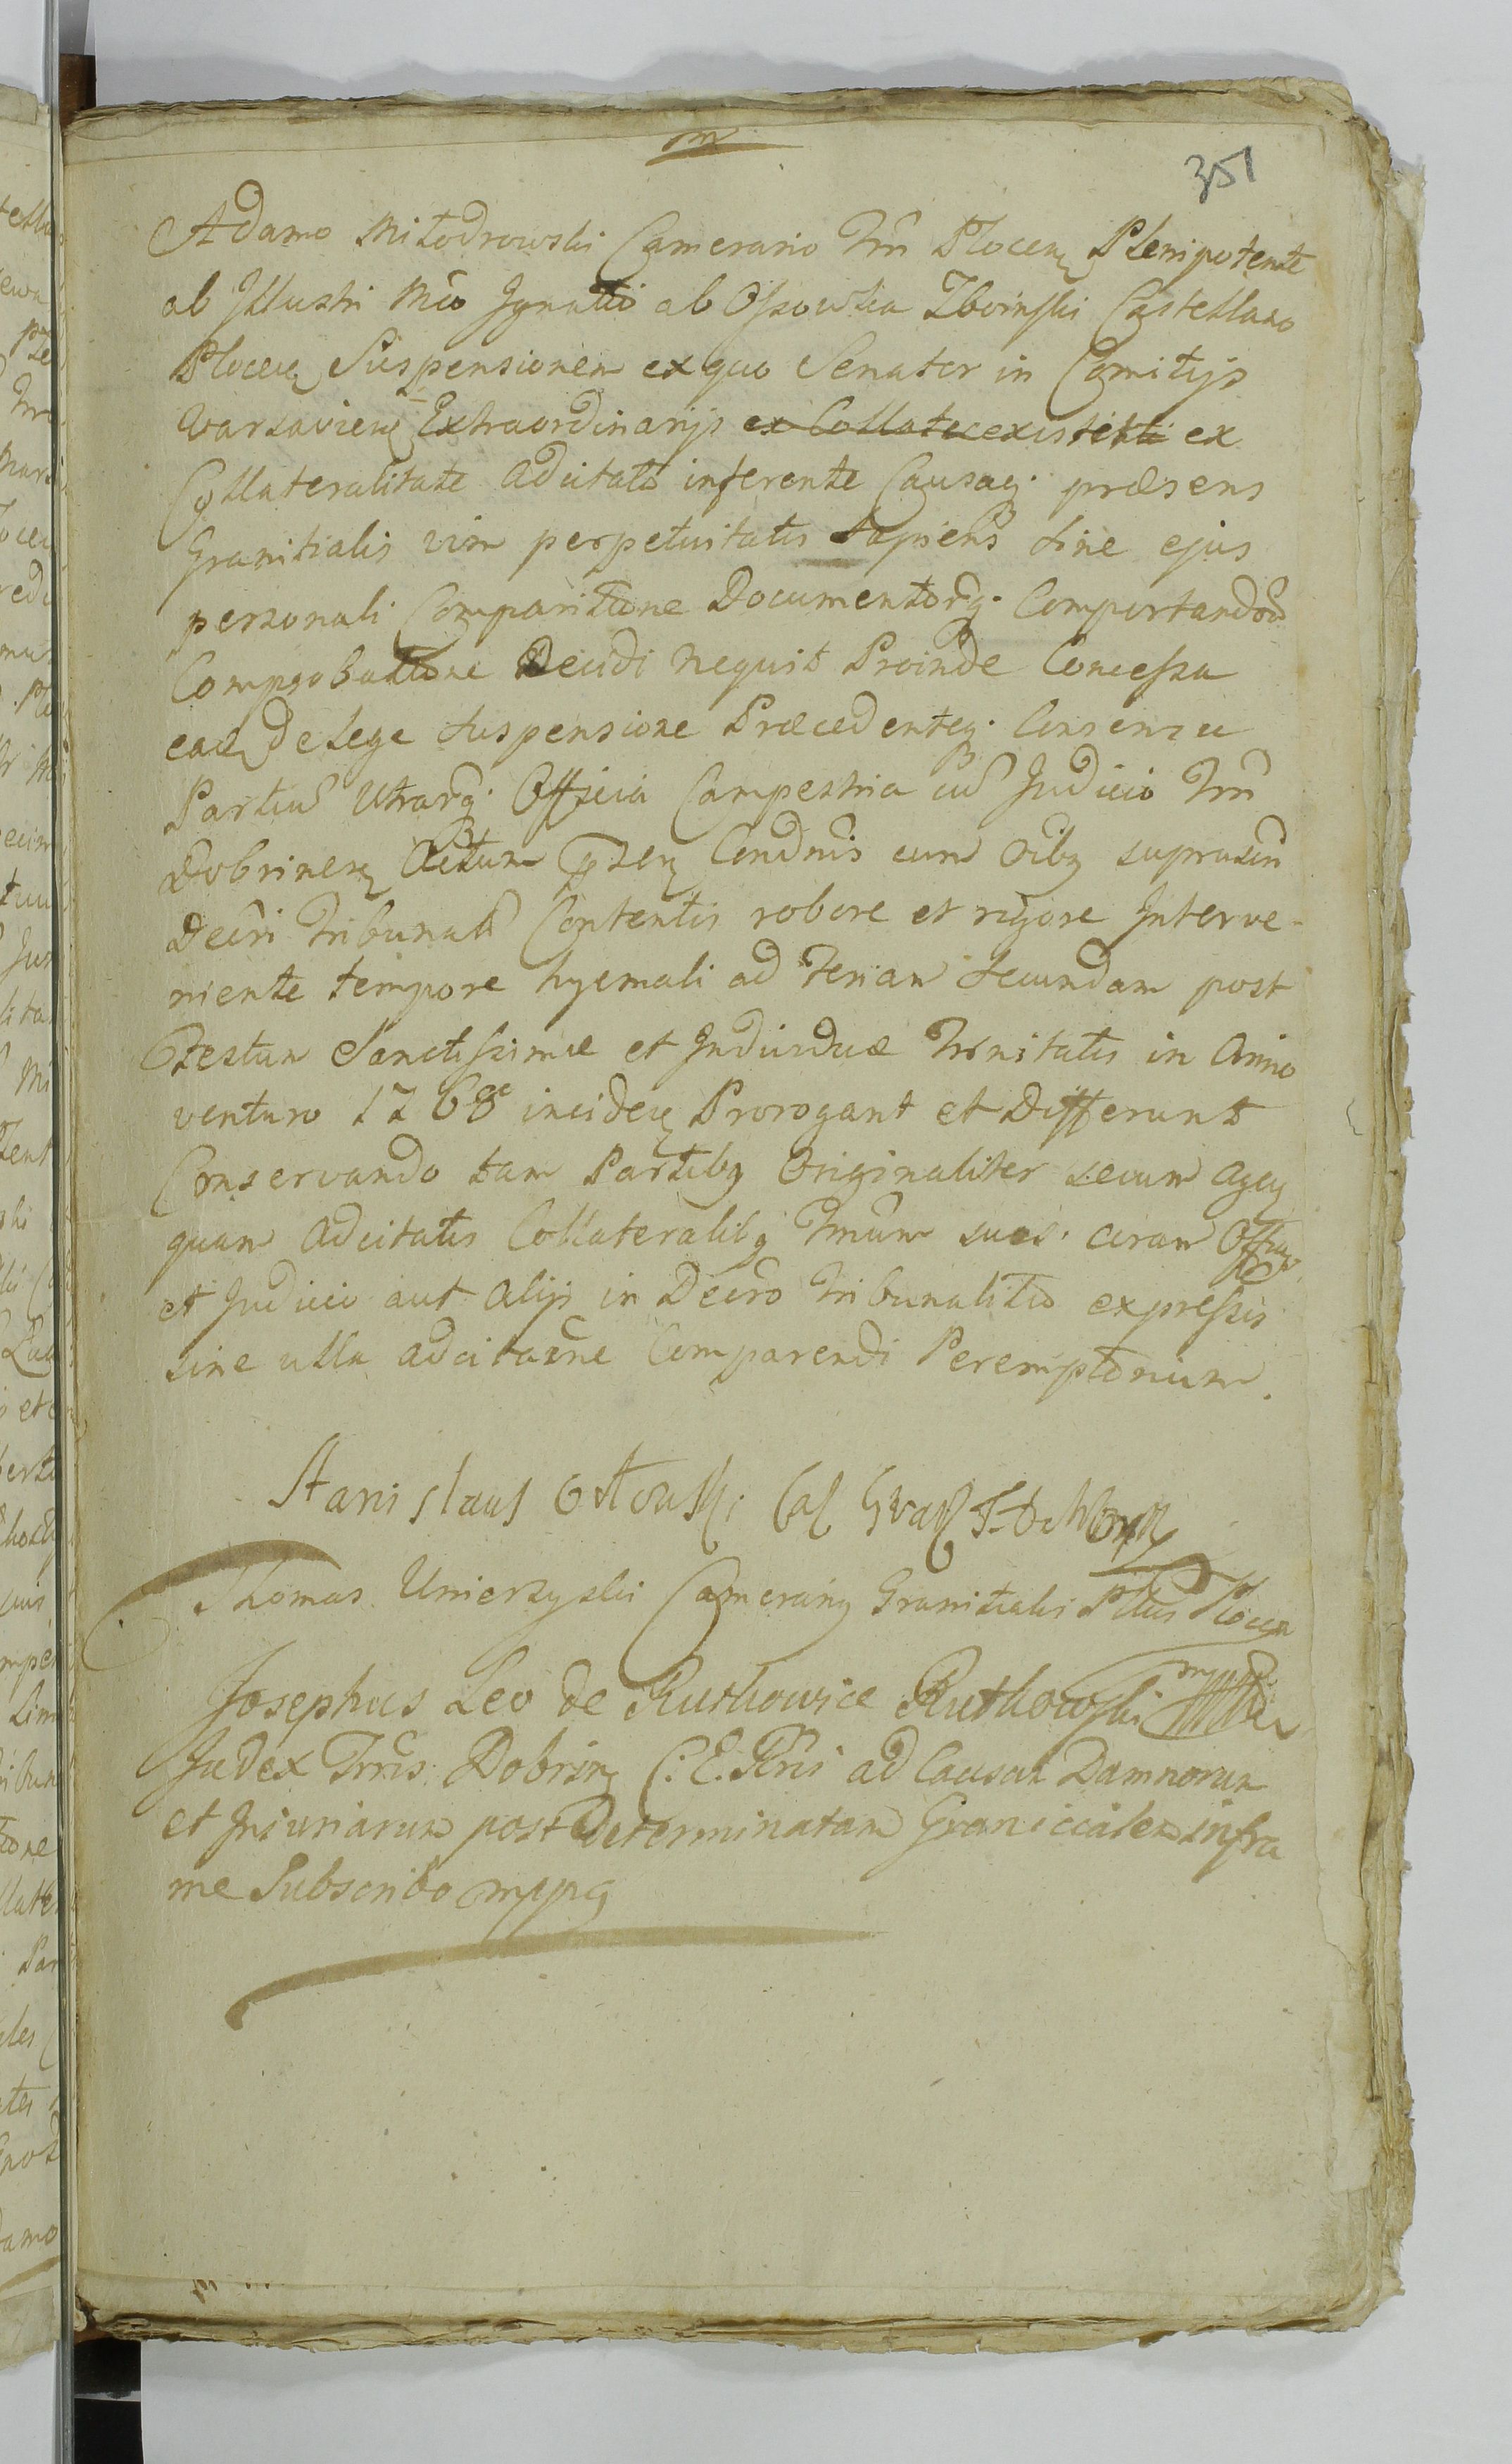 351
Adamo Miłodrowski Camerario Trri Plocen Plenipotente
ab Illustri Mco Ignatio ab Ossowka Zboinski Castellano
Plocen Suspensionem ex quo Senator in Comitijs
Varsavien Extraordinarijs ex Collate existenti ex
Collateralitate adcitato inferente Causaq. præsens
Granitialis vim perpetuitatis sapiens sine ejus
personali Comparitione Documentorq. Comportandor
Comprobatione Decidi nequit Proinde Concessa
eade de Lege suspensione Præcedenteq. Consensu
Partiu Utrarq. Officia Campestria cu Judicio Trri
Dobrinen Actum Pnsen Condnis cum oibq suprascri
Decri Tribunals Contentis robore et rigore Interve-
niente tempore hyemali ad Feriam Secundam post
Festum Sanctissimæ et Individuæ Trinitatis in Anno
venturo 1768 inciden Prorogant et Differunt
Conservando tam Partibq Originaliter secum agen
quam adcitatis Collateralibq Tmum suos. coram Offic
et Judicio aut alijs in Decro Tribunalitio expressis
sine ulla adcitacne Comparendi Peremptorium.
Stanislaus
Thomas Unierzyski Camerariq Granitialis Pttus Plocen
Josephus Leo de Rutkowice Rutkowski
Judex Trris: Dobrin C. E. Trris ad Causam Damnorum
et Iniuriarum post Determinatam Graniccialem infra
me Subscribo mppa